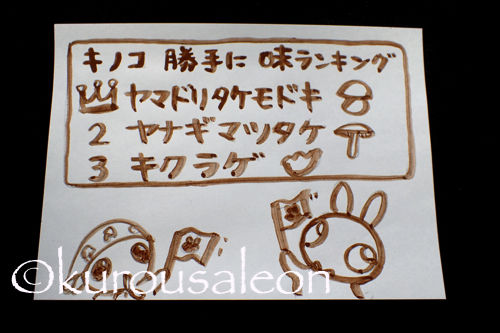 キノコ 勝手に 味ランキング
ヤマドリタケモドキ
2 ヤナギマツタケ
3 キクラゲ
©kurousaleon